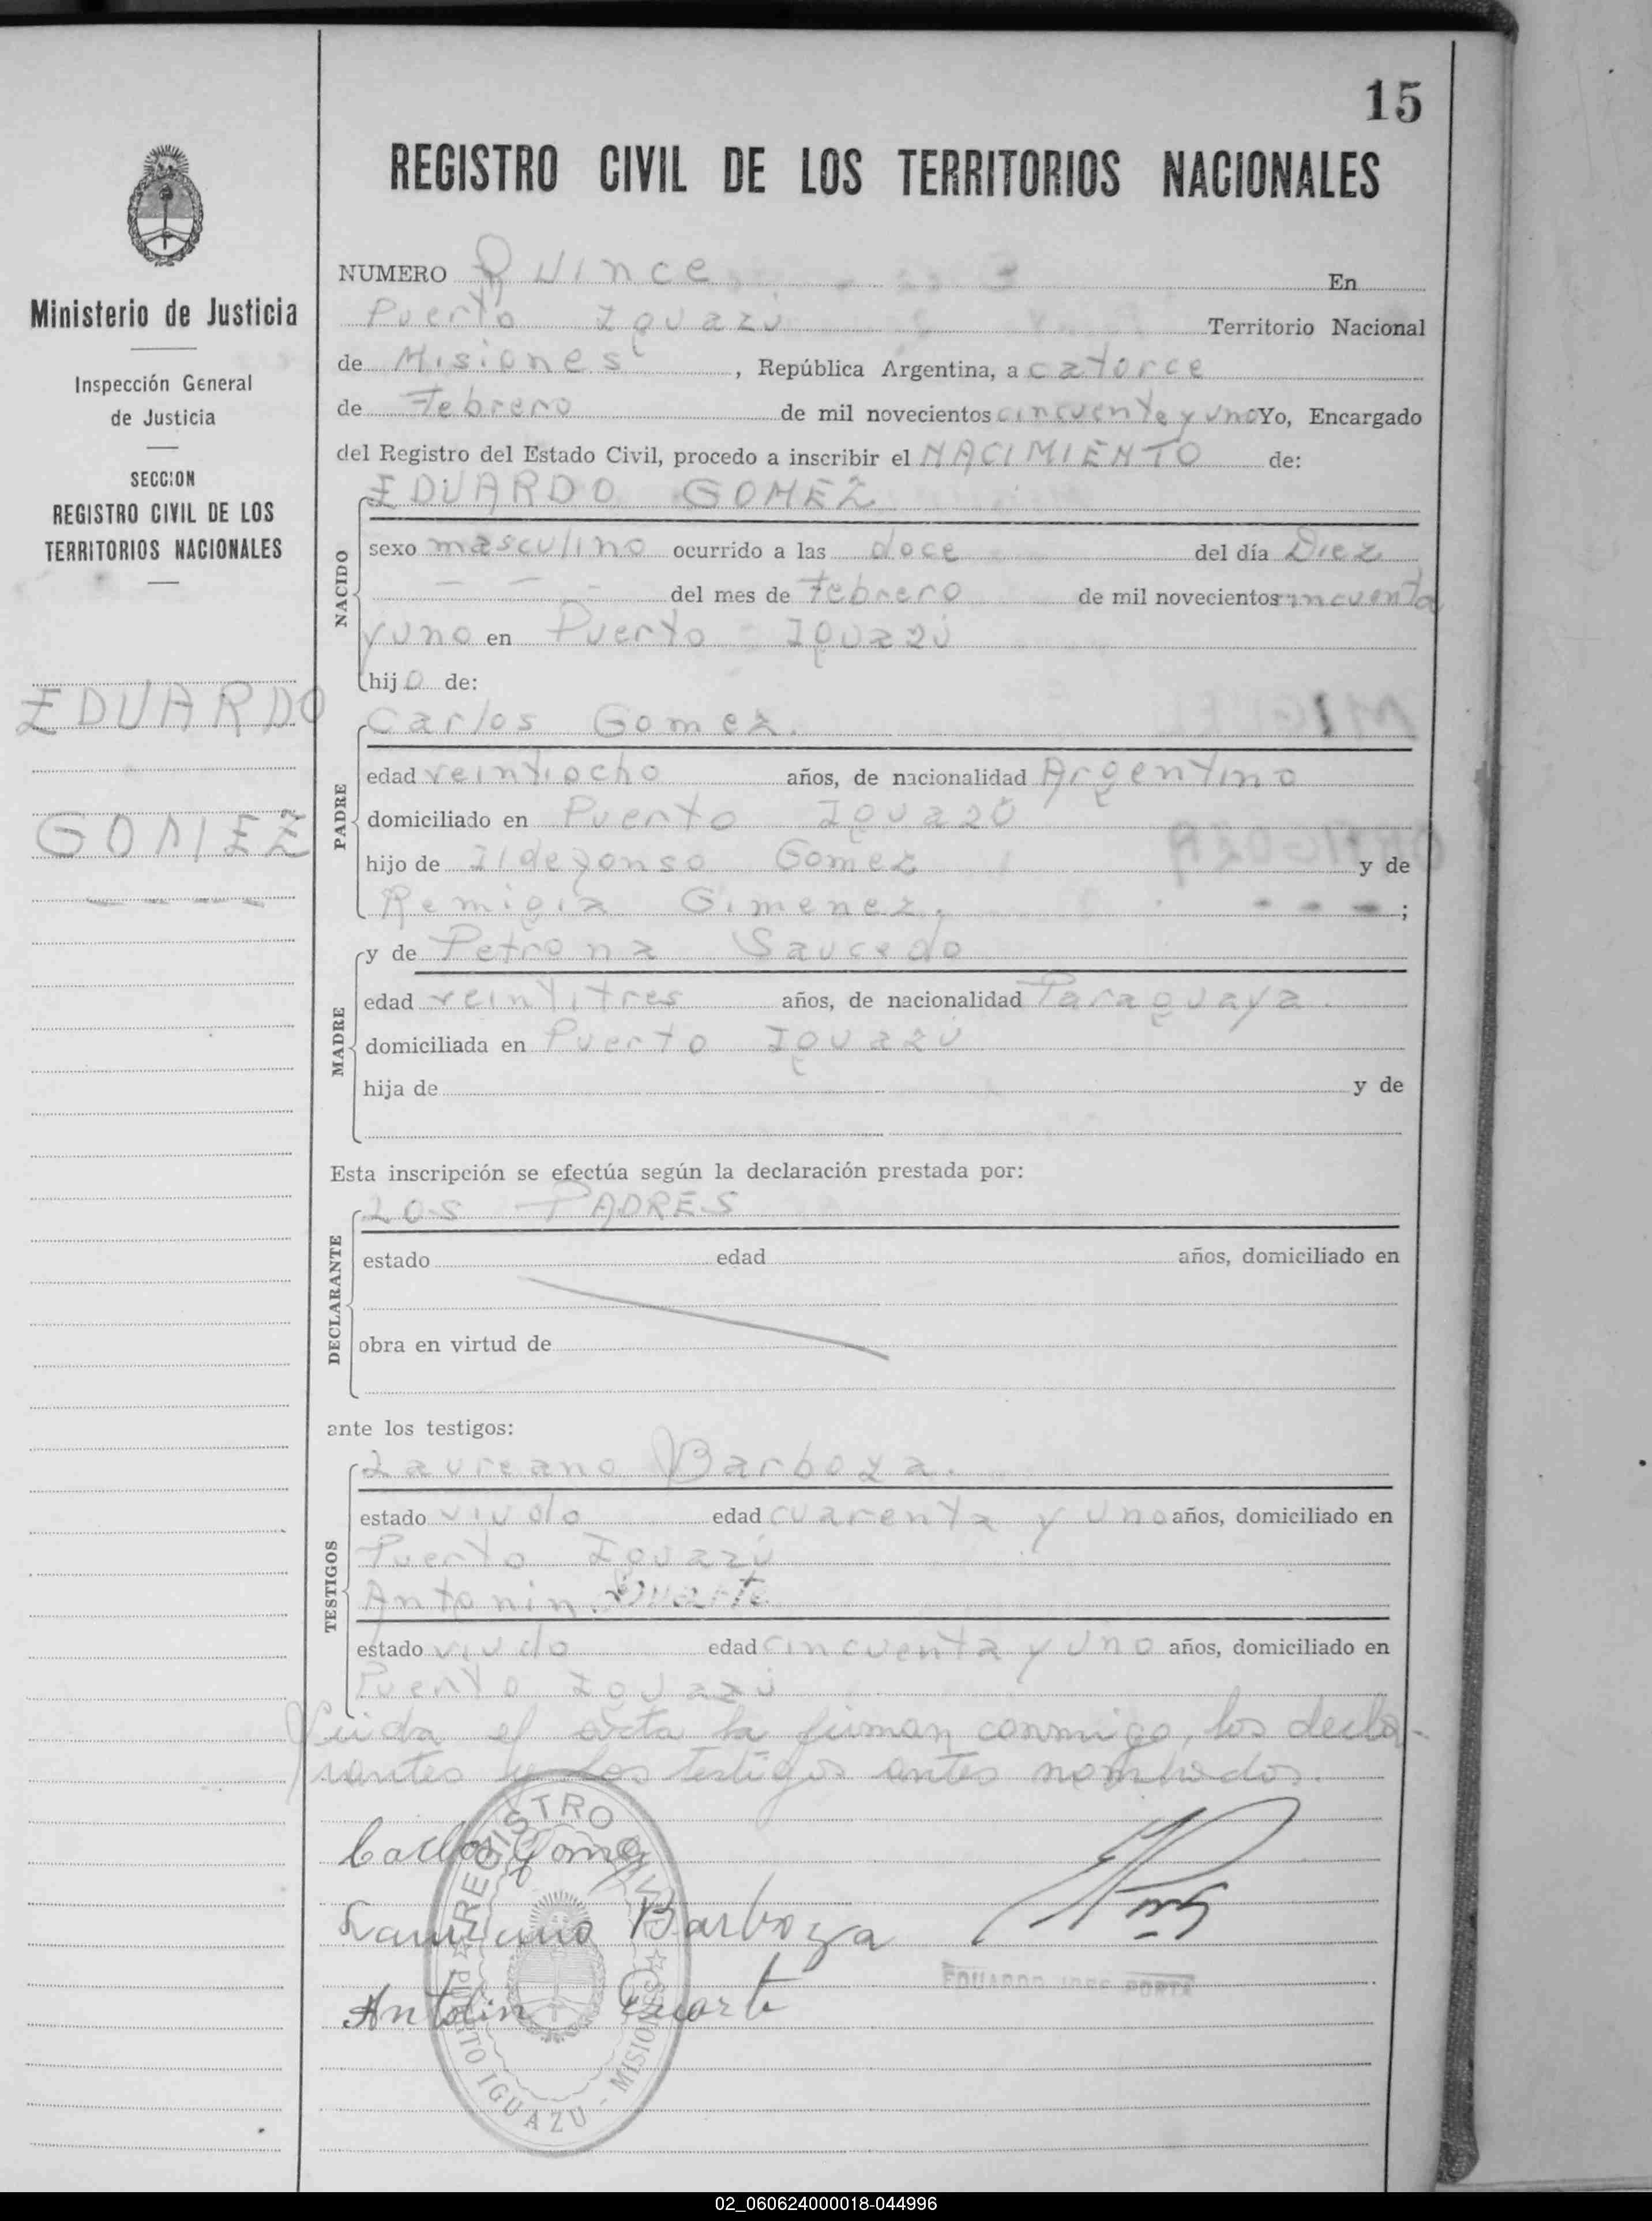 15
REGISTRO CIVIL DE LOS TERRITORIOS NACIONALES
Ministerio de Justicia
Inspección General
de Justicia
SECCION
REGISTRO CIVIL DE LOS
TERRITORIOS NACIONALES
EDUARDO
GOMEZ
NUMERO Quince En
Puerto Iguazú Territorio Nacional
de Misiones, República Argentina, a catorce
de Febrero de mil novecientos cincuenta y uno Yo, Encargado
del Registro del Estado Civil, procedo a inscribir el NACIMIENTO de:
EDUARDO GOMEZ
NACIDO
sexo masculino ocurrido a las doce del día Diez
del mes de Febrero de mil novecientos cincuenta
y uno en Puerto Iguazú
hijo de:
Carlos Gomez.
PADRE
edad veintiocho años, de nacionalidad Argentino
domiciliado en Puerto Iguazú
hijo de Ildefonso Gomez y de
Remigia Gimenez. - - - ;
MADRE
y de Petrona Saucedo
edad veintitres años, de nacionalidad Paraguaya.
domiciliada en Puerto Iguazú
hija de y de
Esta inscripción se efectúa según la declaración prestada por:
LOS PADRES
DECLARANTE
estado edad años, domiciliado en
obra en virtud de
ante los testigos:
Laureano Barboza.
TESTIGOS
estado viudo edad cuarenta y uno años, domiciliado en
Puerto Iguazú
Antonin Duarte
estado viudo edad cincuenta y uno años, domiciliado en
Puerto Iguazú
Leida el acta la firman conmigo, los decla-
rantes y los testigos antes nombrados.
Carlos Gomez
Laureano Barboza
EDUARDO JOSE PORTA
Antolin Duarte
REGISTRO CIVIL
PUERTO IGUAZU - MISIONES
02_060624000018-044996